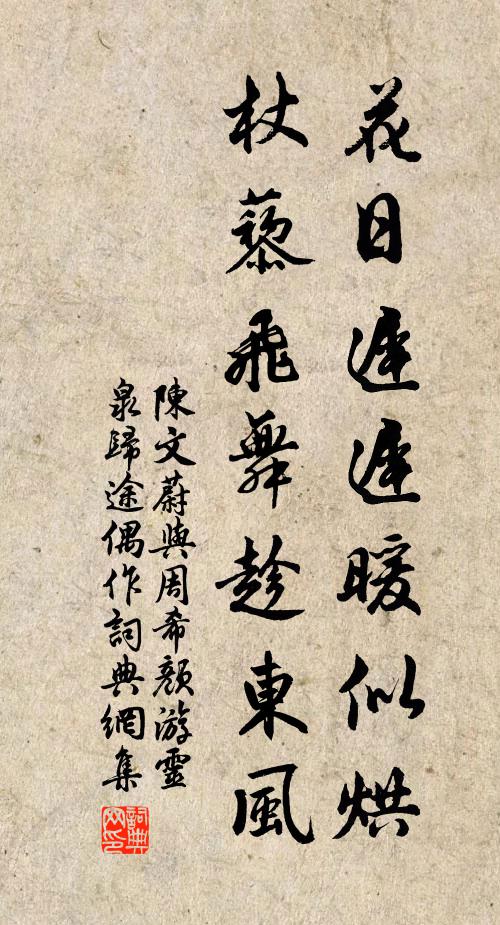 花日遲遲暖似烘
杖藜飛舞趁東風
陳文蔚與周希顏游靈
泉歸途偶作詞典網集
詞典
网印